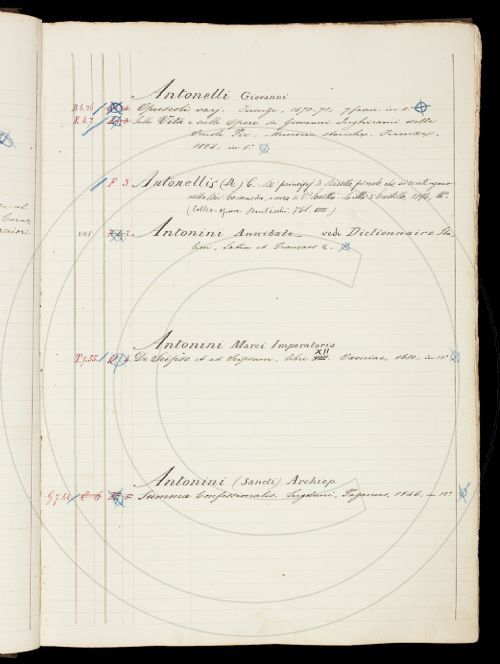 Antonelli Giovanni
B.6.26 Opuscoli varj. Firenze, 1870-71, 7 fasc. in 8°
K.4.7 Sulla Vita e sulle Opere di Giovanni Inghirami delle
Scuole Pie. Memorie storiche. Firenze,
1854. in 8°
F 3 Antonellis (De) C. De' principj di diritto penale che si contengono
nella Div. Commedia, a cura di Città di Castello, 1894, 16°
(Collez. opusc. Danteschi. Vol. VIII.)
Antonini Annibale vedi Dictionnaire Ita-
lien, Latin et François &.
Antonini Marci Imperatoris
T.7.55. De Seipso et ad Seipsum, libri XII Oxoniae, 1680, in 12°
Antonini (Sancti) Archiep.
G.7.45 Summa Confessionalis. Lugduni, Paganus, 1546, in 12°